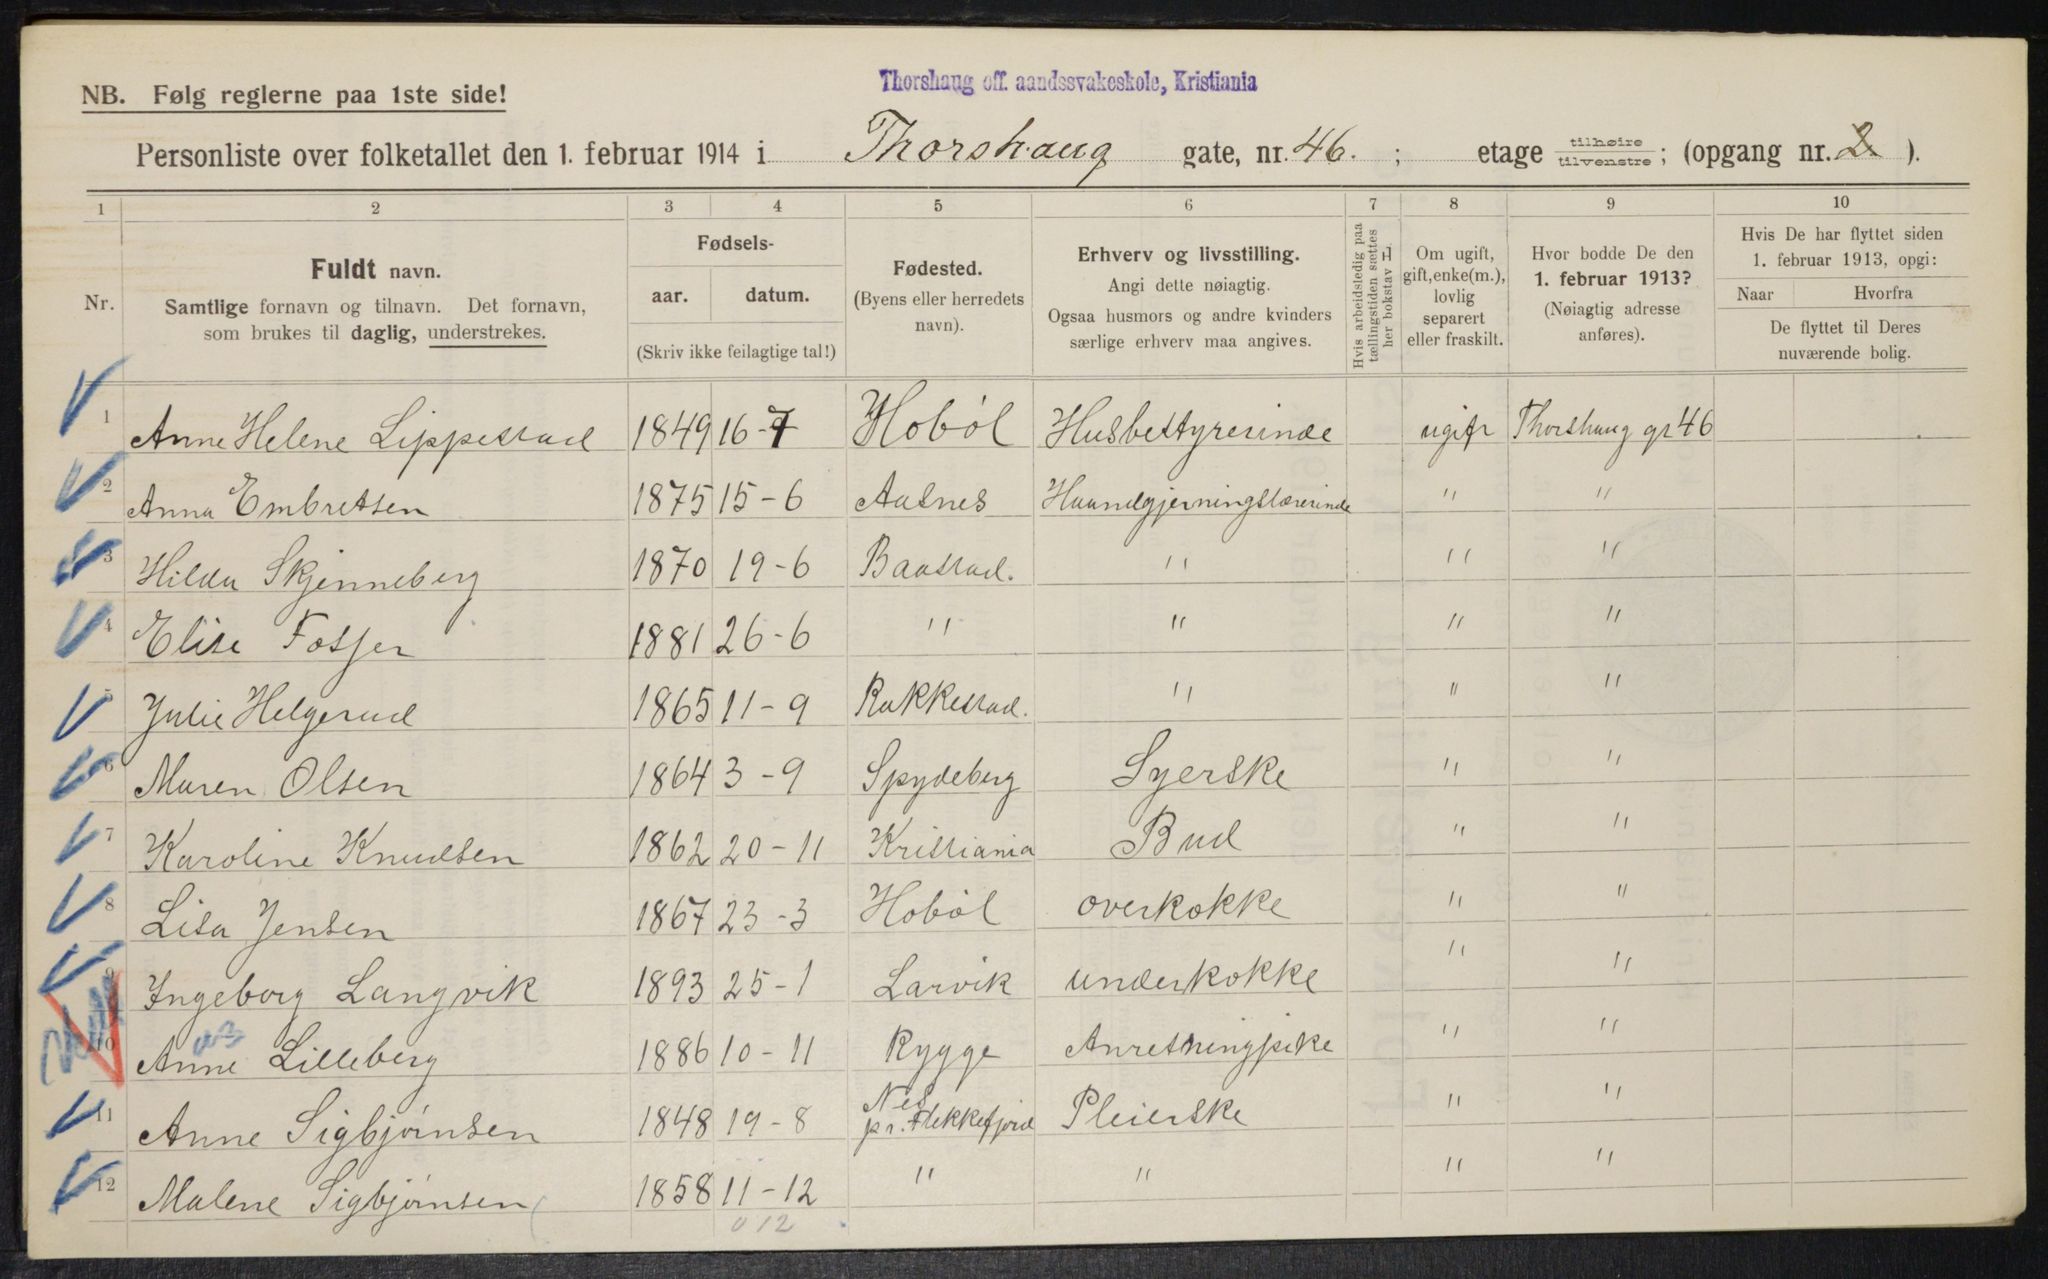 Thorshaug off. aandssvakeskole, Kristiania
NB. Følg reglerne paa 1ste side!
Personliste over folketallet den 1. februar 1914 i Thorshaug gate, nr. 46. ; etage tilhøire tilvenstre ; (opgang nr. 2 ).
1 2 3 4 5 6 7 8 9 10
Nr.
Fuldt navn.
Samtlige fornavn og tilnavn. Det fornavn,
som brukes til daglig, understrekes.
Fødsels-
aar. datum.
(Skriv ikke feilagtige tal!)
Fødested.
(Byens eller herredets
navn).
Erhverv og livsstilling.
Angi dette nøiagtig.
Ogsaa husmors og andre kvinders
særlige erhverv maa angives.
Hvis arbeidsledig paa
tællingstiden sættes
her bokstav L
Om ugift,
gift, enke(m.),
lovlig
separert
eller fraskilt.
Hvor bodde De den
1. februar 1913?
(Nøiagtig adresse
anføres).
Hvis De har flyttet siden
1. februar 1913, opgi:
Naar Hvorfra
De flyttet til Deres
nuværende bolig.
1 Anne Helene Lippestad 1849 16-7 Hobøl Husbestyrerinde ugift Thorshaug gt 46
2 Anna Embretsen 1875 15-6 Aasnes Haandgjerningslærerinde " "
3 Hilda Skjenneberg 1870 19-6 Baastad. " " "
4 Elise Fosser 1881 26-6 " " " "
5 Julie Helgerud 1865 11-9 Rakkestad. " " "
6 Maren Olsen 1864 3-9 Spydeberg Syerske " "
7 Karoline Knudsen 1862 20-11 Kristiania Bud " "
8 Lisa Jensen 1867 23-3 Hobøl overkokke " "
9 Ingeborg Langvik 1893 25-1 Larvik underkokke " "
10 Anne Lilleberg 1886 10-11 Rygge Anretningpike " "
11 Anne Sigbjørnsen 1848 19-8 Nes pr. Flekkefjord Pleierske " "
12 Malene Sigbjørnsen 1858 11-12 " " " "